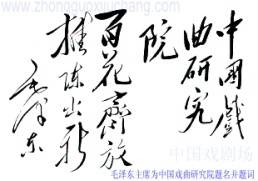 www.zhongguoxiuchang.com
中國戲
曲研究
院
百花齊放
推陈出新
毛澤东
中国戏剧场
毛泽东主席为中国戏曲研究院题名并题词